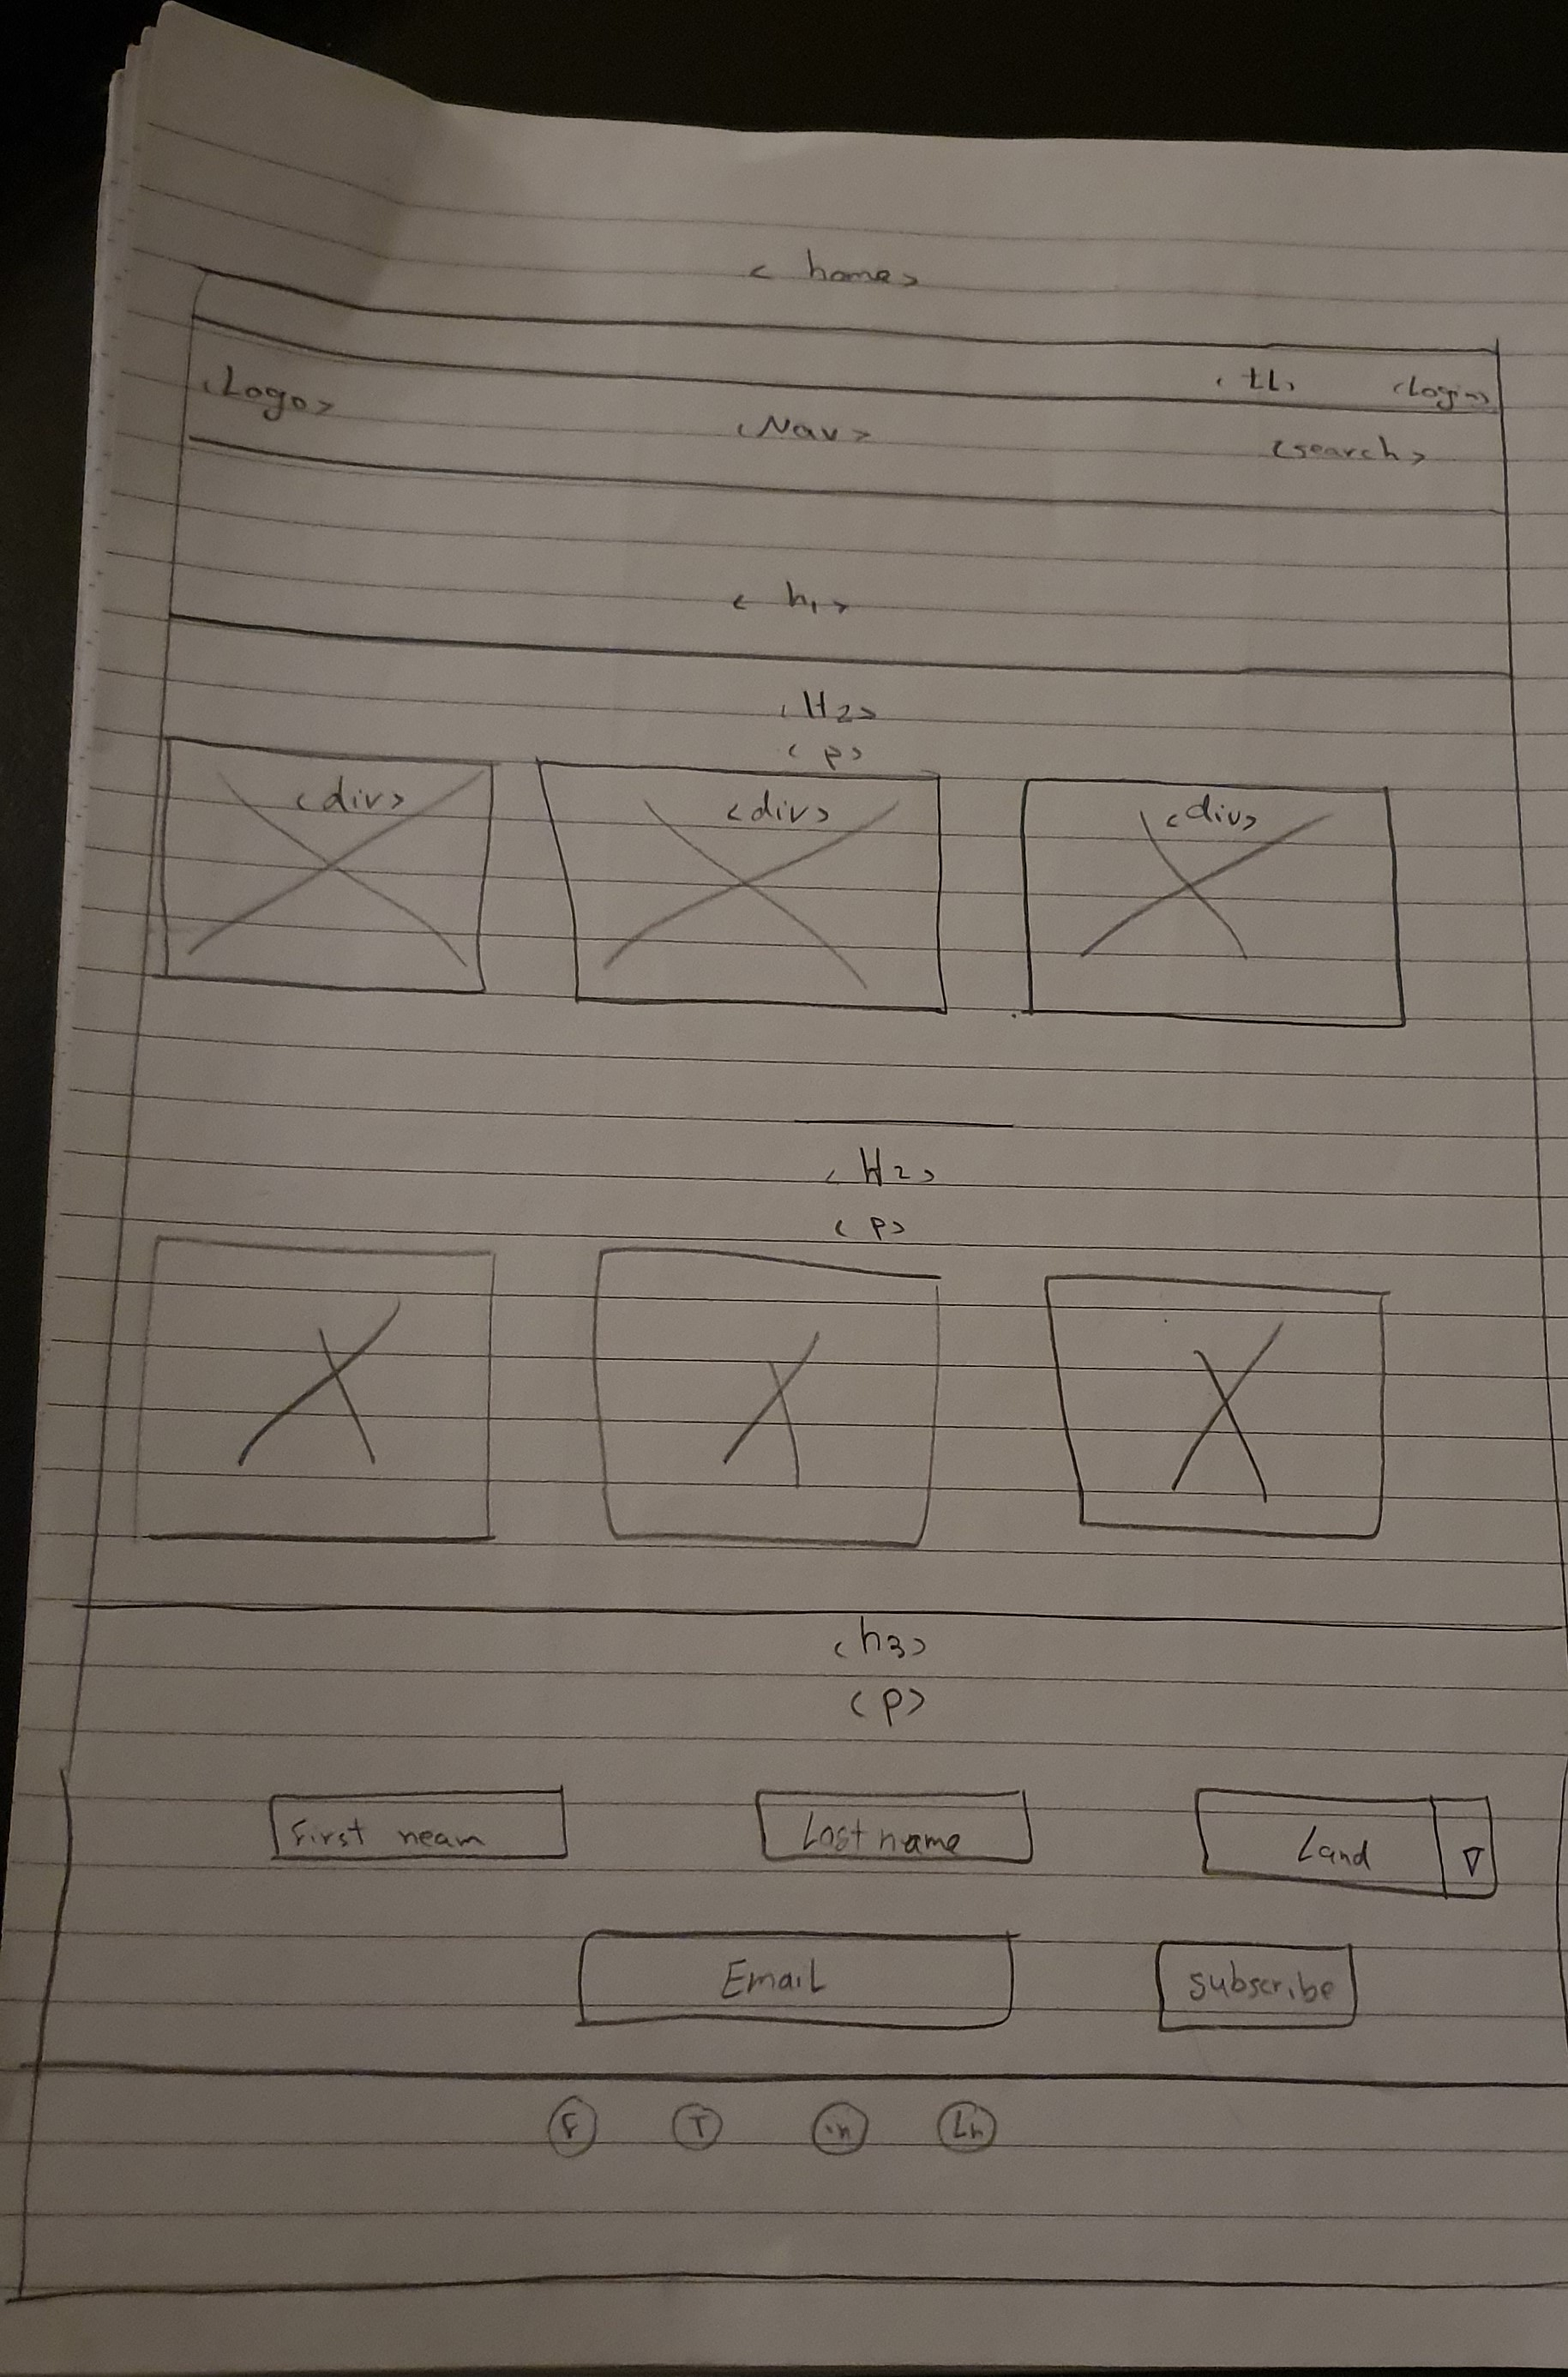 < home>
<tl> <login>
<Logo> <Nav> <search>
< h1>
<H2>
<p>
<div> <div> <div>
<H2>
<p>
<h3>
<p>
First neam Last name Land
Email subscribe
F T in Ln